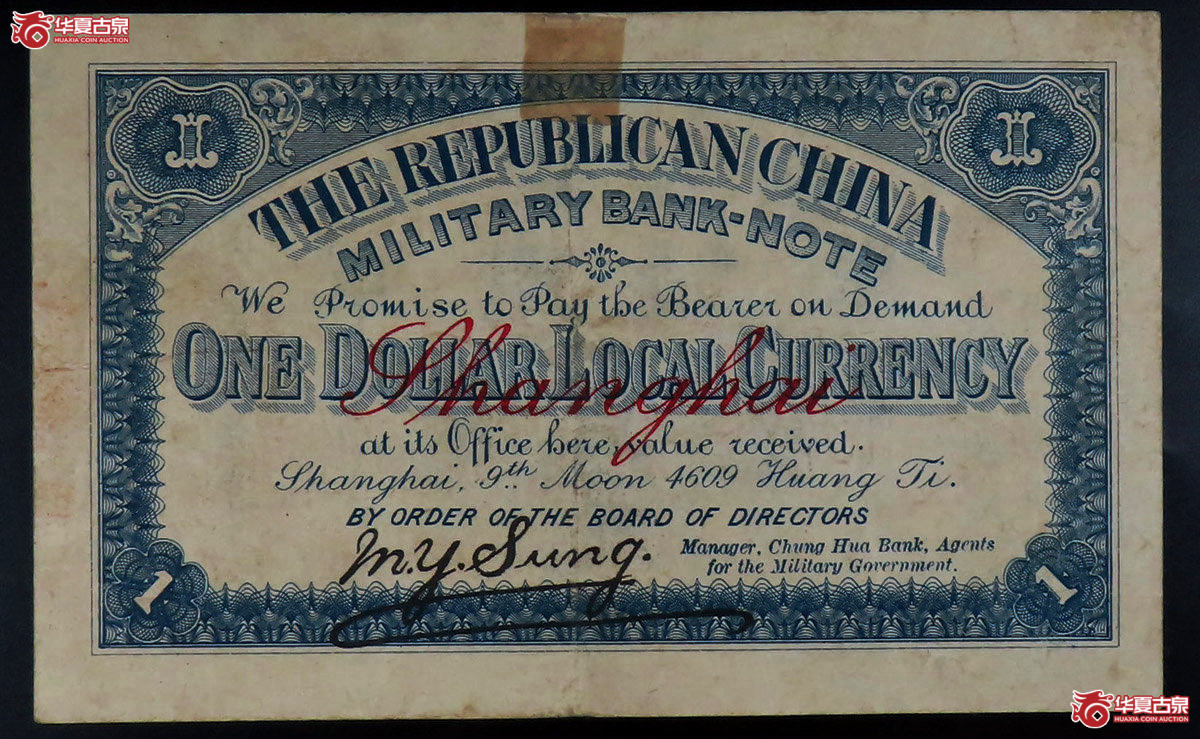 华夏古泉
HUAXIA COIN AUCTION
I I
THE REPUBLICAN CHINA
MILITARY BANK-NOTE
We Promise to Pay the Bearer on Demand
ONE DOLLAR LOCAL CURRENCY
Shanghai
at its Office here, value received.
Shanghai, 9th Moon 4609 Huang Ti.
BY ORDER OF THE BOARD OF DIRECTORS
M.Y. Sung.
Manager, Chung Hua Bank, Agents
for the Military Government.
1 1
华夏古泉
HUAXIA COIN AUCTION